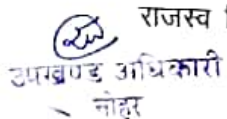 राजस्व
उपखण्ड अधिकारी
नोहर